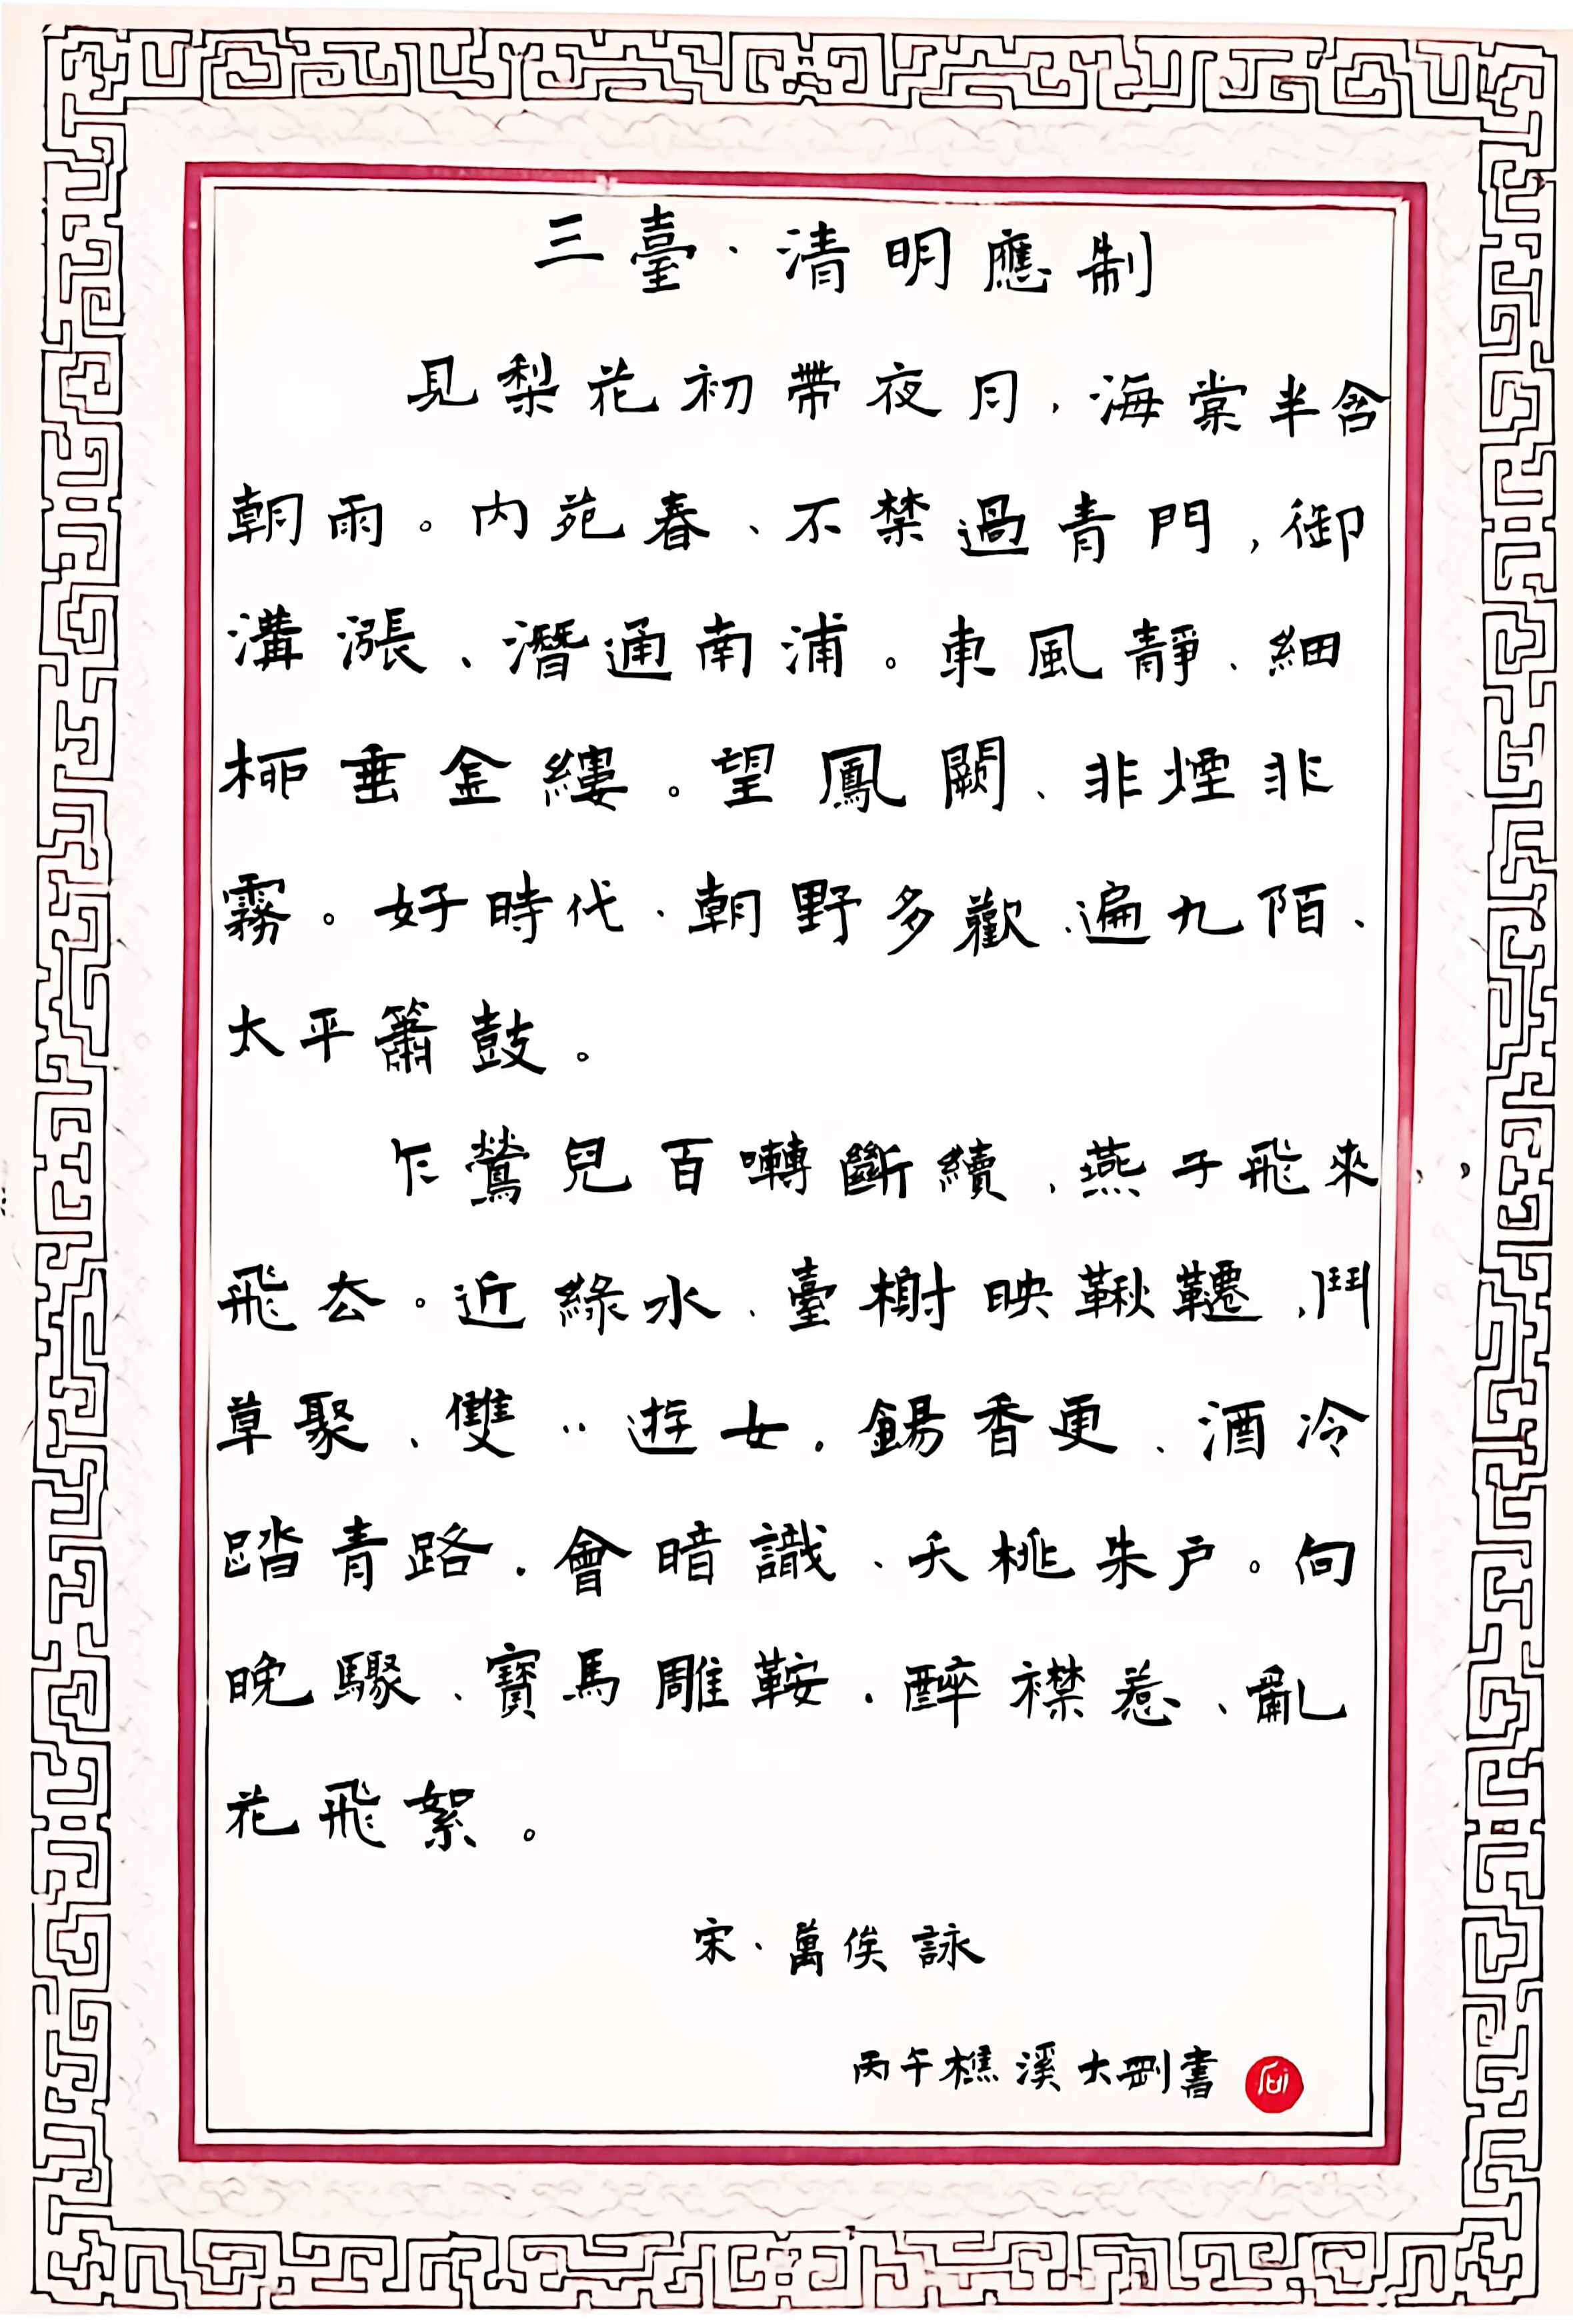 三臺、清明應制
見梨花初帶夜月,海棠半含
朝雨。内苑春、不禁過青門,御
溝漲、潛通南浦。東風靜、細
柳垂金縷。望鳳闕、非煙非
霧。好時代、朝野多歡、遍九陌、
太平簫鼓。
乍鶯兒百囀斷續,燕子飛來
飛去。近綠水、臺榭映鞦韆,鬥
草聚、雙〃遊女。餳香更、酒冷
踏青路。會暗識、夭桃朱户。向
晚驟、寶馬雕鞍。醉襟惹、亂
花飛絮。
宋、萬俟詠
丙午樵溪大剛書